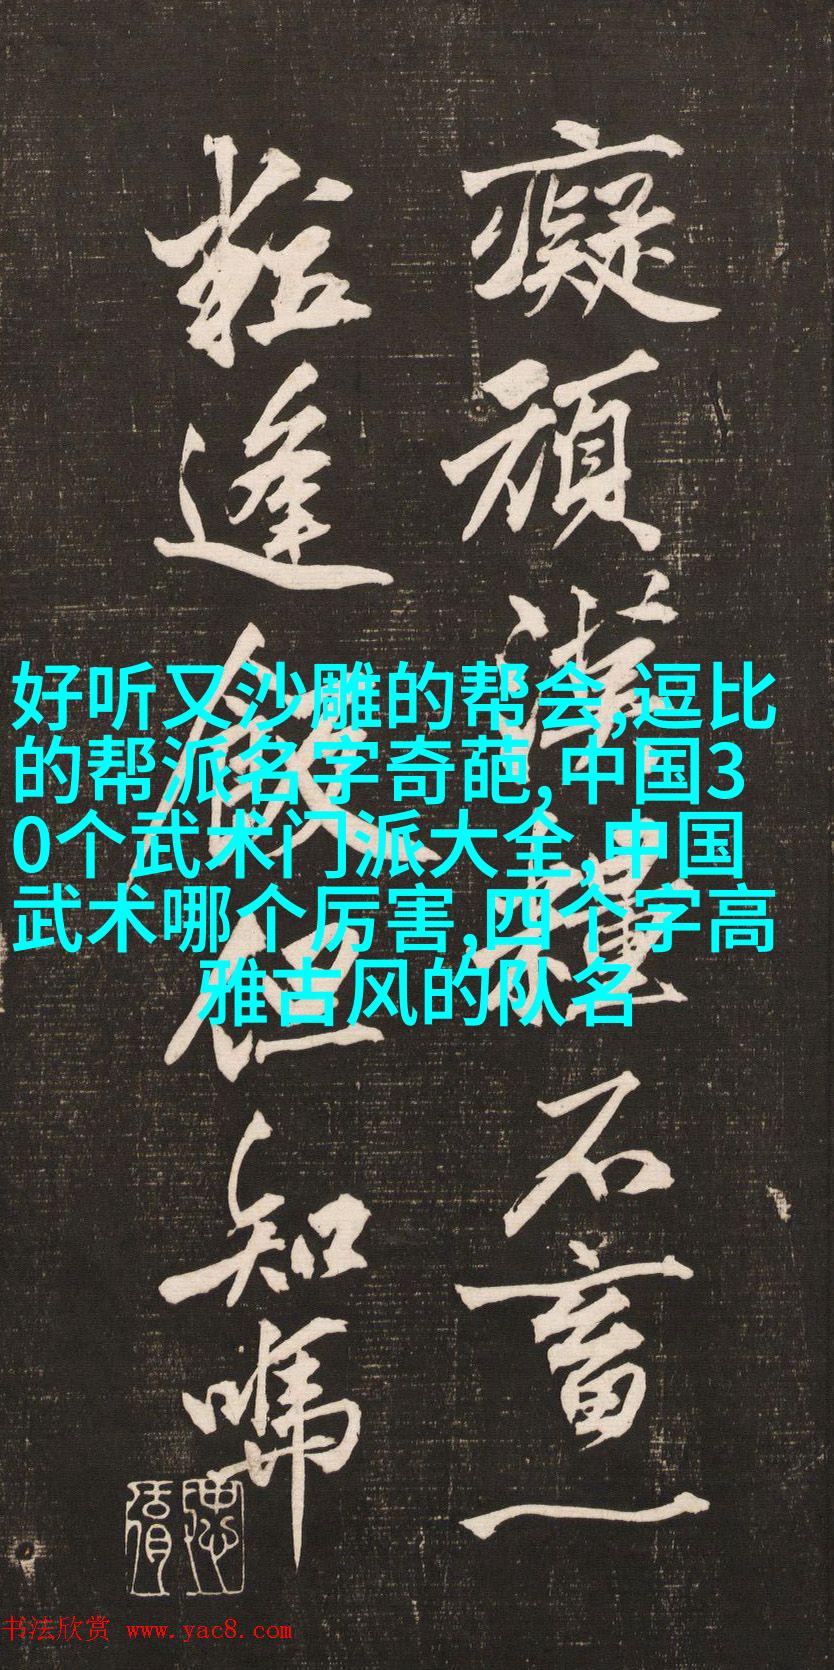 癡頑漢糧石畜一
粒逢但知
好听又沙雕的帮会,逗比
的帮派名字奇葩,中国3
0个武术门派大全,中国
武术哪个厉害,四个字高
雅古风的队名
书法欣赏 www.yac8.com